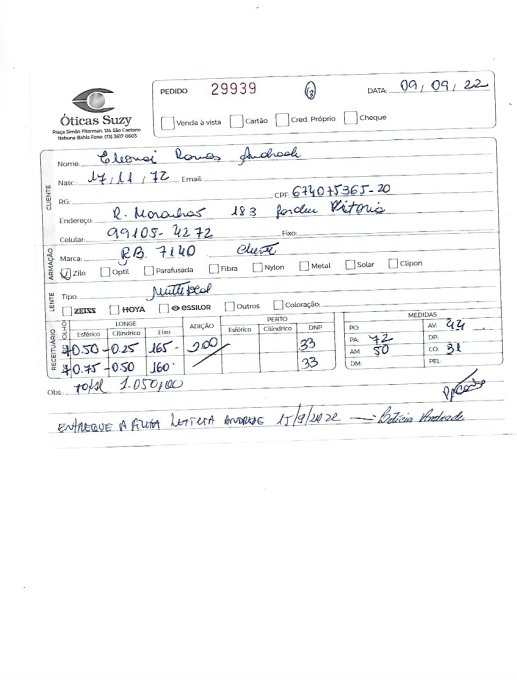 PEDIDO 29939 DATA: 09/09/22
Óticas Suzy
Praça Simão Fiterman, 124 São Caetano
Itabuna-Bahia Fone: (73) 3617-0603
Venda à vista Cartão Cred. Próprio Cheque
CLIENTE
Nome: Andrade
Nasc. 17/11/72 Email:
RG: CPF: 674075365-20
Endereço: R. 183 Jardim Vitoria
Celular: 99105-4272 Fixo:
ARMAÇÃO
Marca: RB 7140 Cliente
Zilo Optil Parafusada Fibra Nylon Metal Solar Clipon
LENTE
Tipo: Multifocal
ZEISS HOYA essilor Outros Coloração:
RECEITUÁRIO
OLHO LONGE ADIÇÃO PERTO DNP MEDIDAS
Esférico Cilíndrico Eixo Esférico Cilíndrico
+0.50 -0.25 165 2.00 33
+0.75 -0.50 160 33
PO: AV: 44
PA: 72 DP:
AM: 50 CO: 31
DM: PEL:
Obs.: Total 1.050,00
ENTREGUE A FILHA LETICIA ANDRADE 15/9/2022 Leticia Andrade